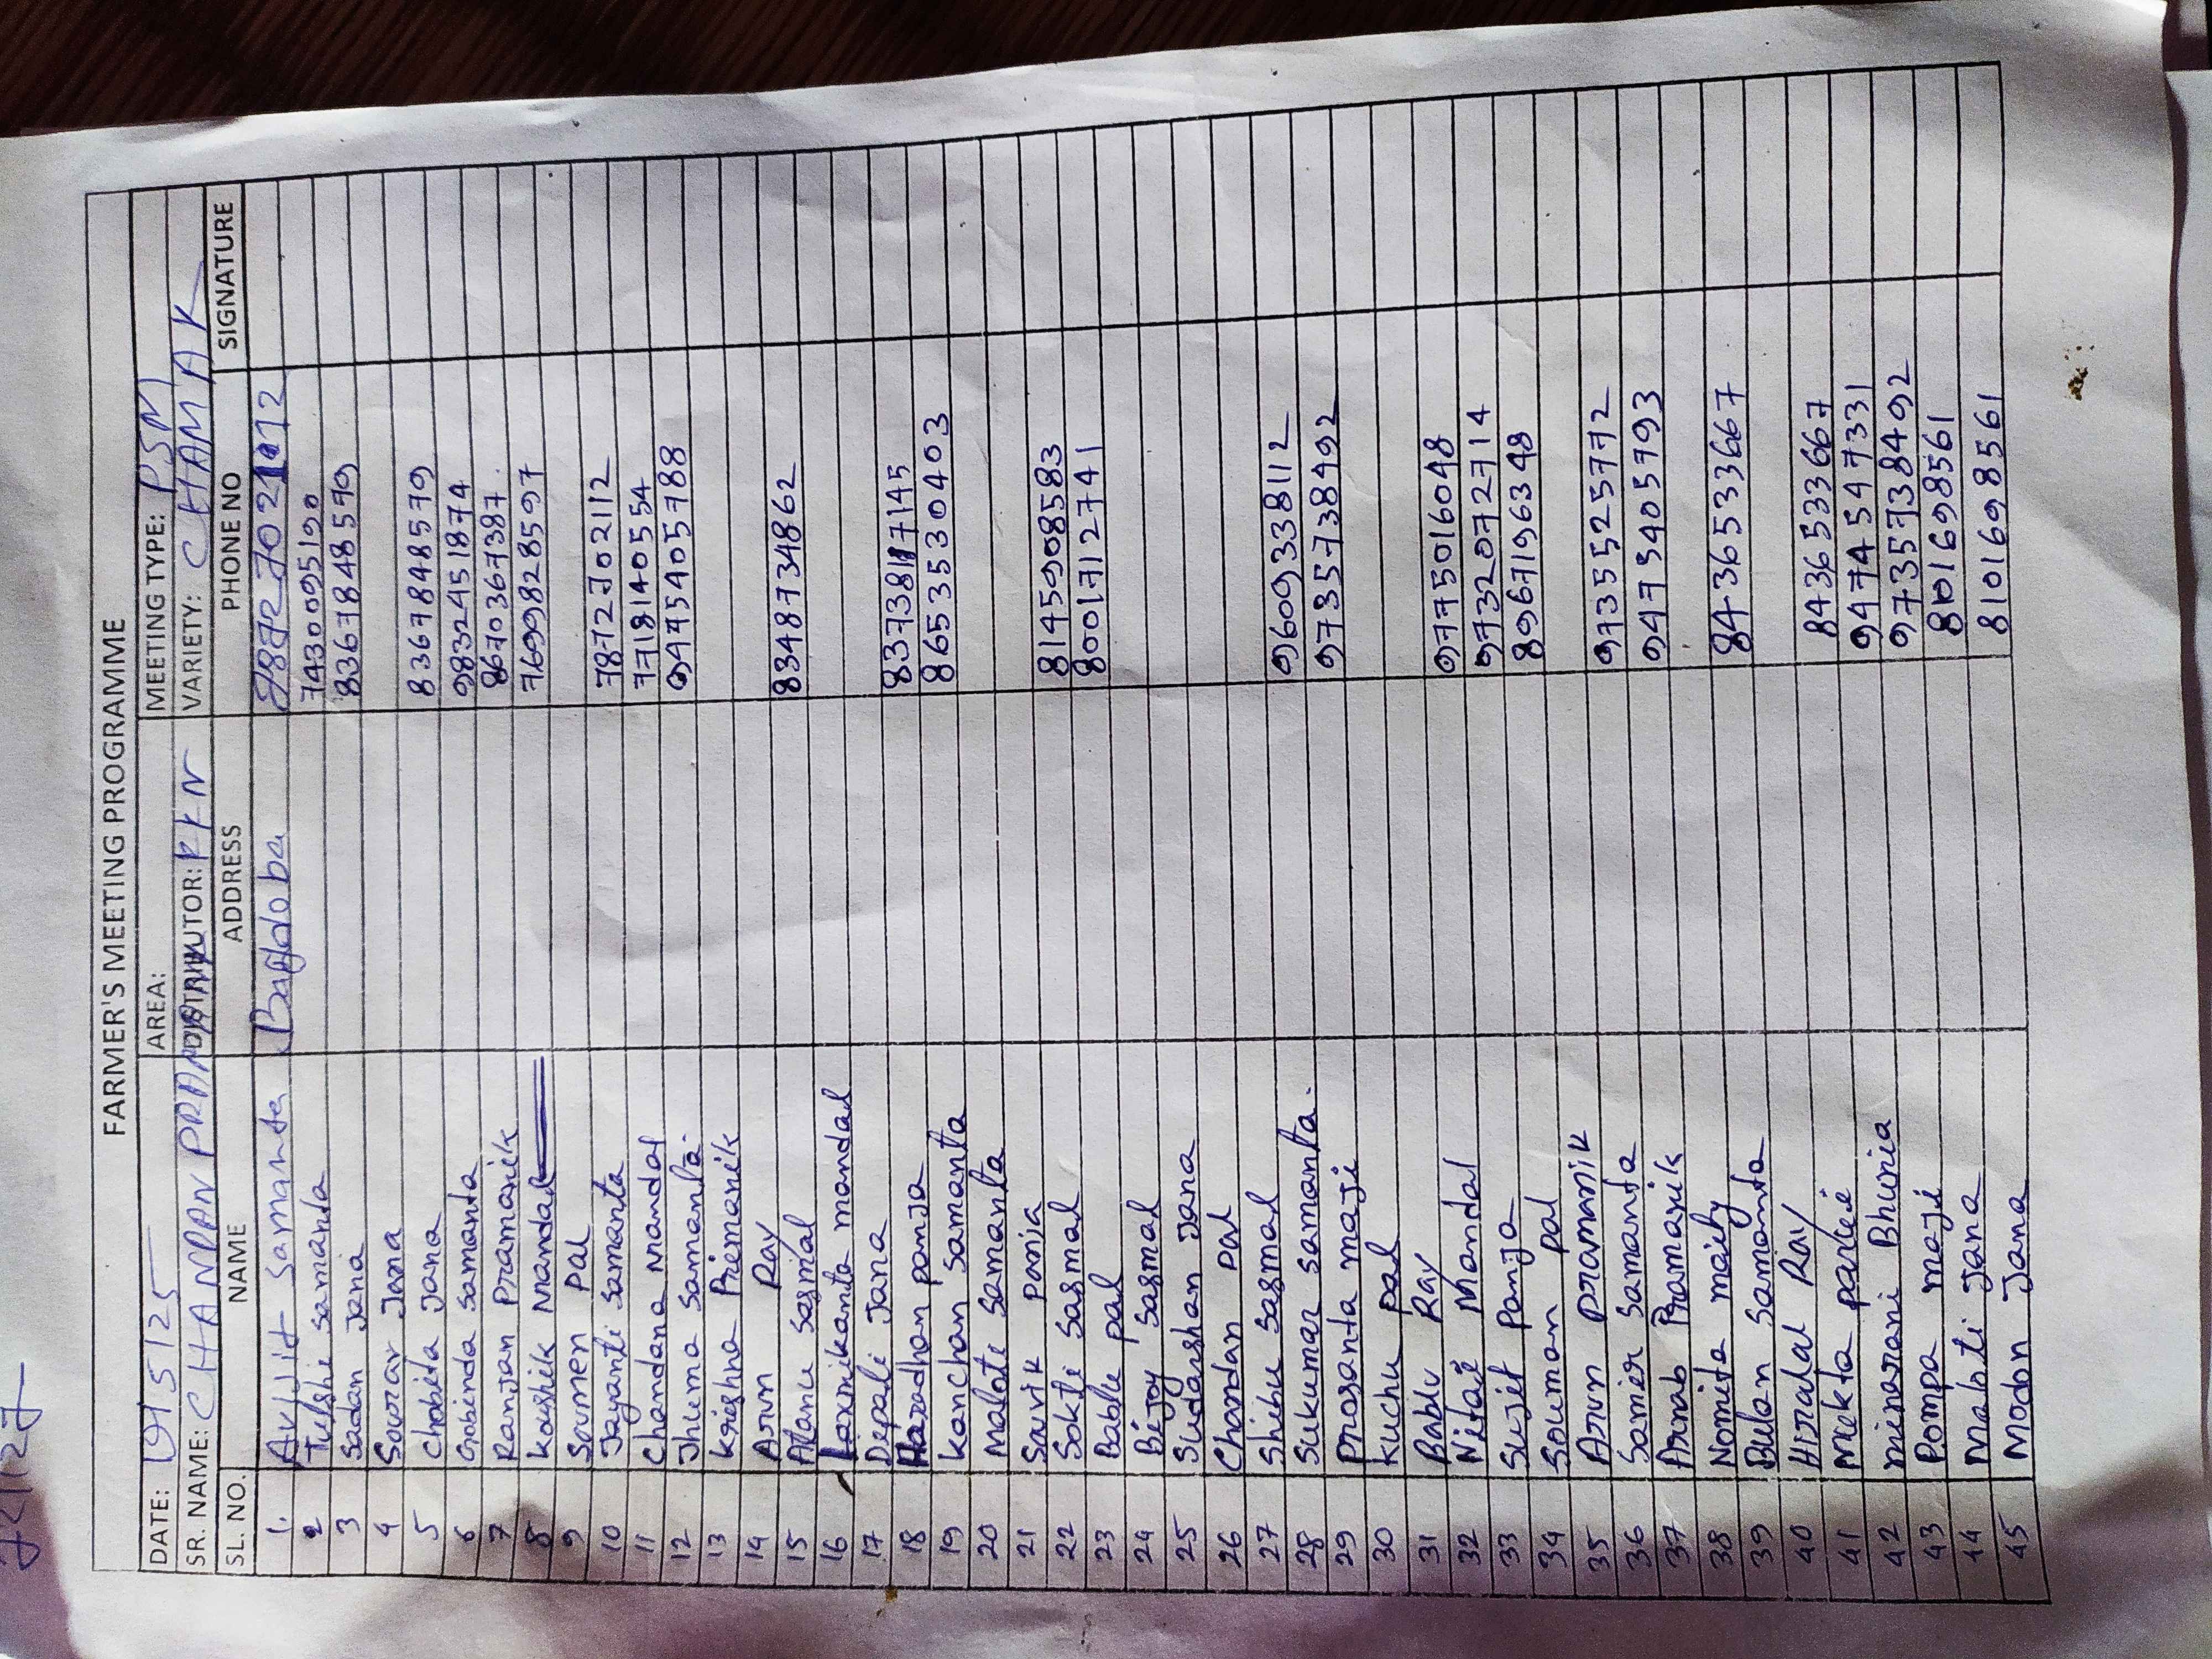 FARMER'S MEETING PROGRAMME
DATE: 19/5/25 AREA: MEETING TYPE: PSM
SR. NAME: CHANDAN PRDHAN DISTRIBUTOR: KKN VARIETY: CHAMAK
SL. NO. NAME ADDRESS PHONE NO SIGNATURE
1. Avijit Samanta Bagdoba
2 Tulshi Samanta 7430095190
3 Sadan Jana 8367848579
4 Sourav Jana
5 Chobita Jana 8367848579
6 Gobinda Samanta 9832451874
7 Ranjan Pramanik 8670367387
8 Koushik Mandal 7699828597
9 Soumen Pal
10 Jayanti Samanta 7872702112
11 Chandana Mandal 7718140554
12 Jhuma Samanta 9475405788
13 Krishna Priemanik
14 Arun Ray
15 Atanu Sasmal 8348734862
16 Laxmikanta mandal
17 Depali Jana
18 Haradhan panja 8373817145
19 Kanchan Samanta 8653530403
20 Maloti Samanta
21 Souvik Panja
22 Sokti Sasmal 8145908583
23 Bablu pal 8001712741
24 Bijoy Sasmal
25 Sudarshan Jana
26 Chandan Pal
27 Shibu Sasmal
28 Sukumar Samanta. 9609338112
29 Prosanta maji 9735738492
30 Kuchu pal
31 Bablu Ray
32 Nitai Mandal 9775016048
33 Sujit Panja 9732072714
34 Souman pal 8967196348
35 Arun pramanik
36 Samir Samanta 9735525772
37 Arnab Pramanik 9475405793
38 Nomita maity
39 Bulan Samanta 8436533667
40 Hiralal Ray
41 Mukta parui 8436533667
42 minarani Bhunia 9474547331
43 Pompa maji 9735738492
44 Mabti Jana 8101698561
45 Modon Jana 8101698561